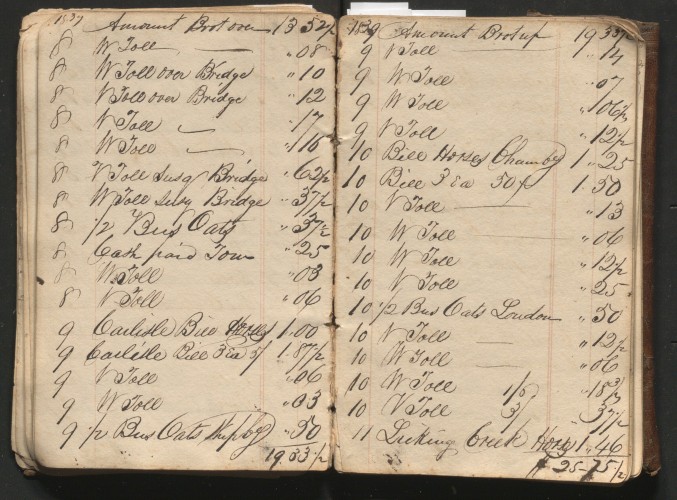 1837 Amount Brot over 13 52 1/2
8 W Toll — " 08
8 W Toll over Bridge " 10
8 V Toll over Bridge " 12
8 V Toll — " 17
8 W Toll — " 16
8 V Toll Susq Bridge " 62 1/2
8 W Toll Susq Bridge " 37 1/2
8 1/2 Bus Oats " 37 1/2
8 Cash paid Tow " 25
8 W Toll " 03
8 V Toll " 06
9 Carlisle Bill Horses 1.00
9 Carlisle Bill 3 Ea 1.87 1/2
9 V Toll " 06
9 W Toll " 03
9 1/2 Bus Oats Shipbg " 50
19.33 1/2
Amount Brot up 19 33 1/2
9 V Toll " 14
9 W Toll " 07
9 W Toll " 06 1/2
9 V Toll " 12 1/2
10 Bill Horses Chambg 1 " 25
10 Bill 3 Ea 50 1.50
10 V Toll — " 13
10 W Toll — " 06
10 W Toll " 12 1/2
10 V Toll " 25
10 1/2 Bus Oats Loudon " 50
10 V Toll — " 12 1/2
10 W Toll — " 06
10 W Toll " 18
10 V Toll " 37 1/2
11 Licking Creek Horses 1 " 46